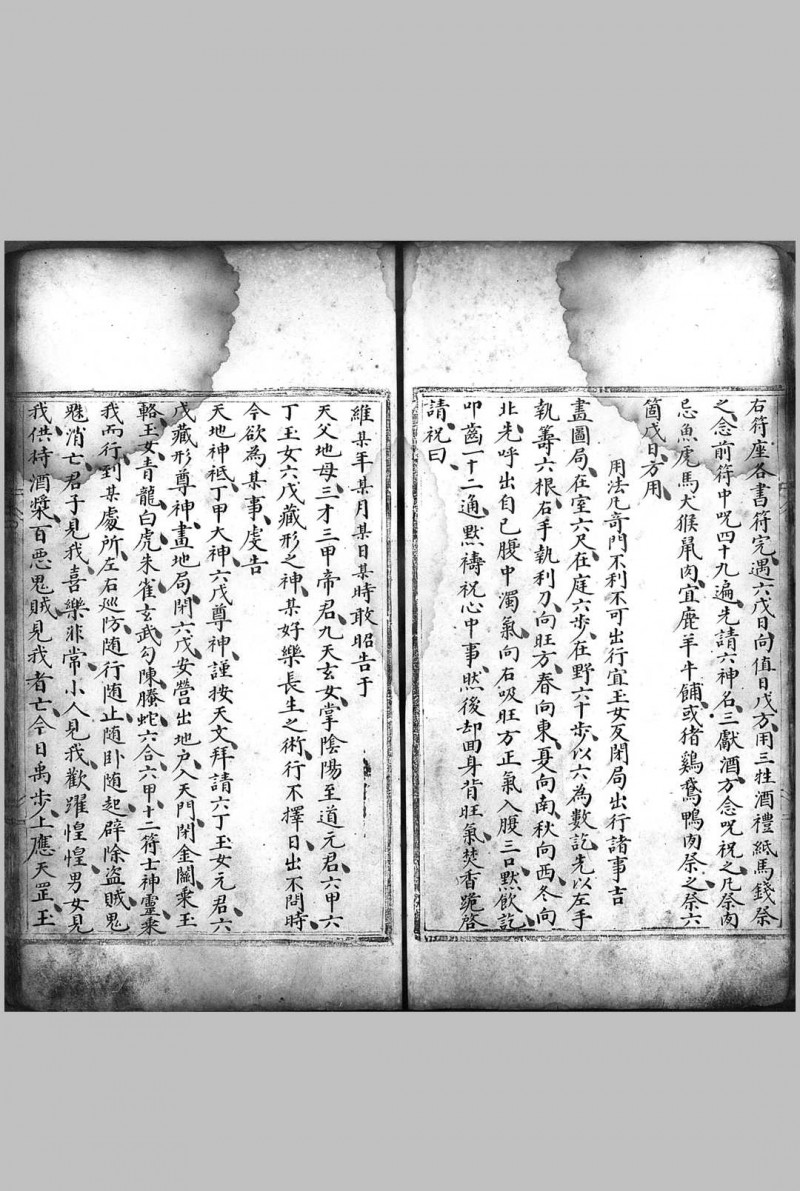 右符座各書符完遇六戊日向值日戊方用三牲酒禮紙馬錢祭
之念前符中呪四十九遍先請六神名三獻酒方念呪祝之凡祭肉
忌魚虎馬犬猴鼠肉宜鹿羊牛脯或猪鷄鵞鴨肉祭之祭六
箇戊日方用
用法凡奇門不利不可出行宜玉女反閉局出行諸事吉
畫圖局在室六尺在庭六步在野六十步以六為數訖先以左手
執籌六根右手執利刀向旺方春向東夏向南秋向西冬向
北先呼出自己腹中濁氣向右吸旺方正氣入腹三口默飲訖
叩齒一十二通默禱祝心中事然後却回身背旺氣焚香跪啓
請祝曰
維某年某月某日某時敢昭告于
天父地母三才三甲帝君九天玄女掌陰陽至道元君六甲六
丁玉女六戊藏形之神某好樂長生之術行不擇日出不問時
今欲為某事虔告
天地神祇丁甲大神六戊尊神謹按天文拜請六丁玉女元君六
戊藏形尊神畫地局閉六戊安營出地户入天門閉金關乘玉
輅玉女青龍白虎朱雀玄武勾陳螣蛇六合六甲十二符士神靈乘
我而行到某處所左右巡防随行随止随卧随起辟除盗賊鬼
魅消亡君子見我喜樂非常小人見我歡躍惶惶男女見
我供侍酒漿百惡鬼賊見我者亡今日禹步上應天罡玉